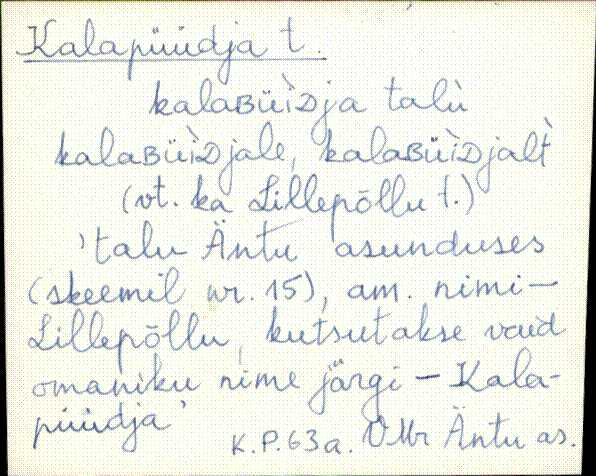 Kalapüüdja t.
kalaʙüìᴅja talù
kalaʙüìᴅjale, kalaʙüìᴅjalt̀
(vt. ka Lillepõllu t.)
'talu Äntu asunduses
(skeemil nr. 15), am. nimi -
Lillepõllu, kutsutakse vaid
omaniku nime järgi - Kala-
püüdja'
K.P. 63a. VMr Äntu as.